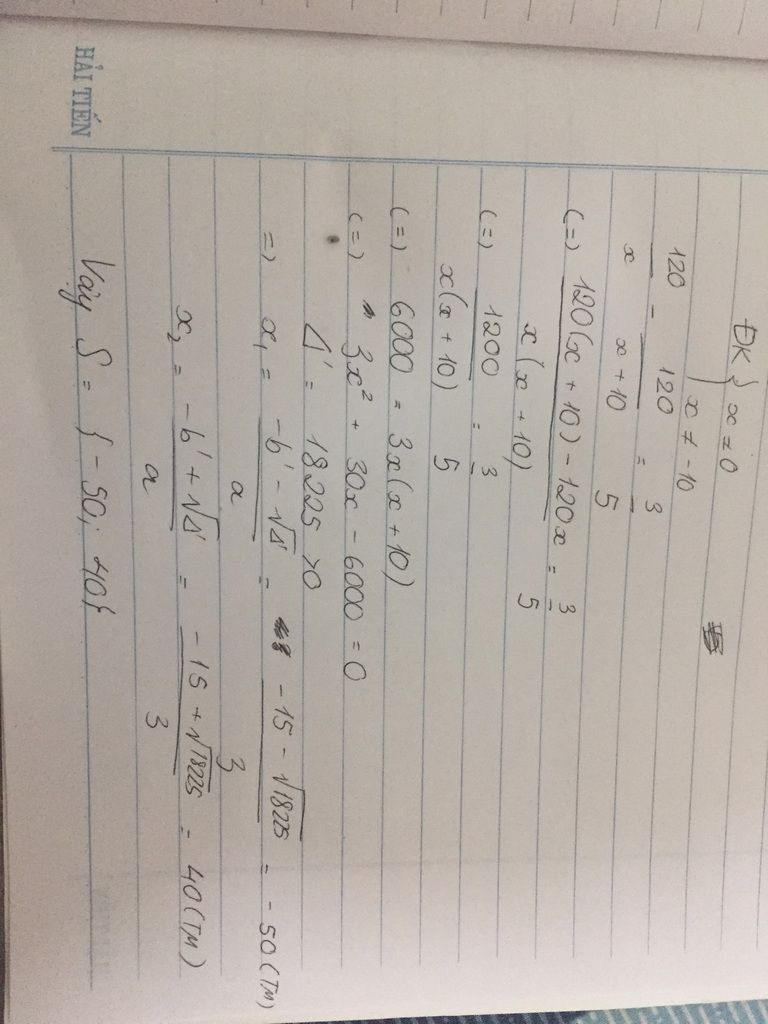 HẢI TIẾN
ĐK } x ≠ 0
x ≠ -10
120/x - 120/(x + 10) = 3/5
(=) (120(x + 10) - 120x)/(x(x + 10)) = 3/5
(=) 1200/(x(x + 10)) = 3/5
(=) 6000 = 3x(x + 10)
(=) 3x² + 30x - 6000 = 0
Δ' = 18225 > 0
=) x₁ = (-b' - √Δ')/a = (-15 - √18225)/3 = -50 (TM)
x₂ = (-b' + √Δ')/a = (-15 + √18225)/3 = 40 (TM)
Vậy S = { -50; 40}